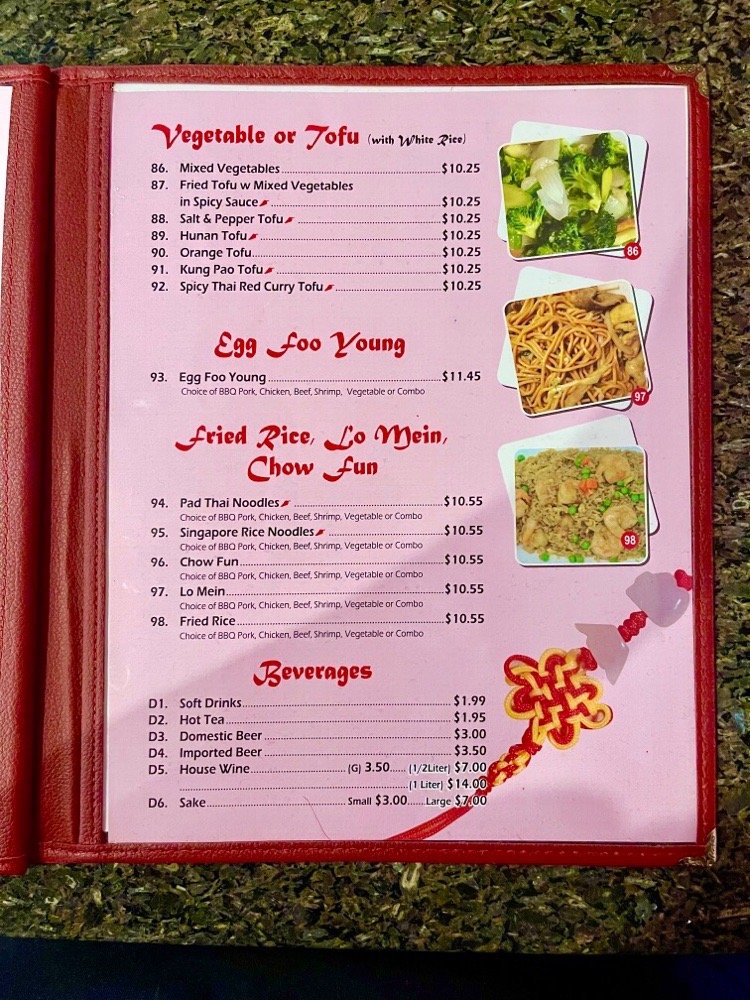 Vegetable or Tofu (with White Rice)
86. Mixed Vegetables $10.25
87. Fried Tofu w Mixed Vegetables
in Spicy Sauce $10.25
88. Salt & Pepper Tofu $10.25
89. Hunan Tofu $10.25
90. Orange Tofu $10.25
91. Kung Pao Tofu $10.25
92. Spicy Thai Red Curry Tofu $10.25
86
Egg Foo Young
93. Egg Foo Young $11.45
Choice of BBQ Pork, Chicken, Beef, Shrimp, Vegetable or Combo
97
Fried Rice, Lo Mein,
Chow Fun
94. Pad Thai Noodles $10.55
Choice of BBQ Pork, Chicken, Beef, Shrimp, Vegetable or Combo
95. Singapore Rice Noodles $10.55
Choice of BBQ Pork, Chicken, Beef, Shrimp, Vegetable or Combo
96. Chow Fun $10.55
Choice of BBQ Pork, Chicken, Beef, Shrimp, Vegetable or Combo
97. Lo Mein $10.55
Choice of BBQ Pork, Chicken, Beef, Shrimp, Vegetable or Combo
98. Fried Rice $10.55
Choice of BBQ Pork, Chicken, Beef, Shrimp, Vegetable or Combo
98
Beverages
D1. Soft Drinks $1.99
D2. Hot Tea $1.95
D3. Domestic Beer $3.00
D4. Imported Beer $3.50
D5. House Wine (G) 3.50 (1/2Liter) $7.00
(1 Liter) $14.00
D6. Sake Small $3.00 Large $7.00